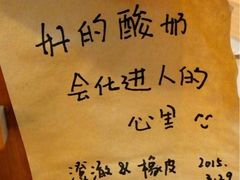 好的酸奶
会化进人的
心里
澄澈 & 橡皮 2015.
3.29